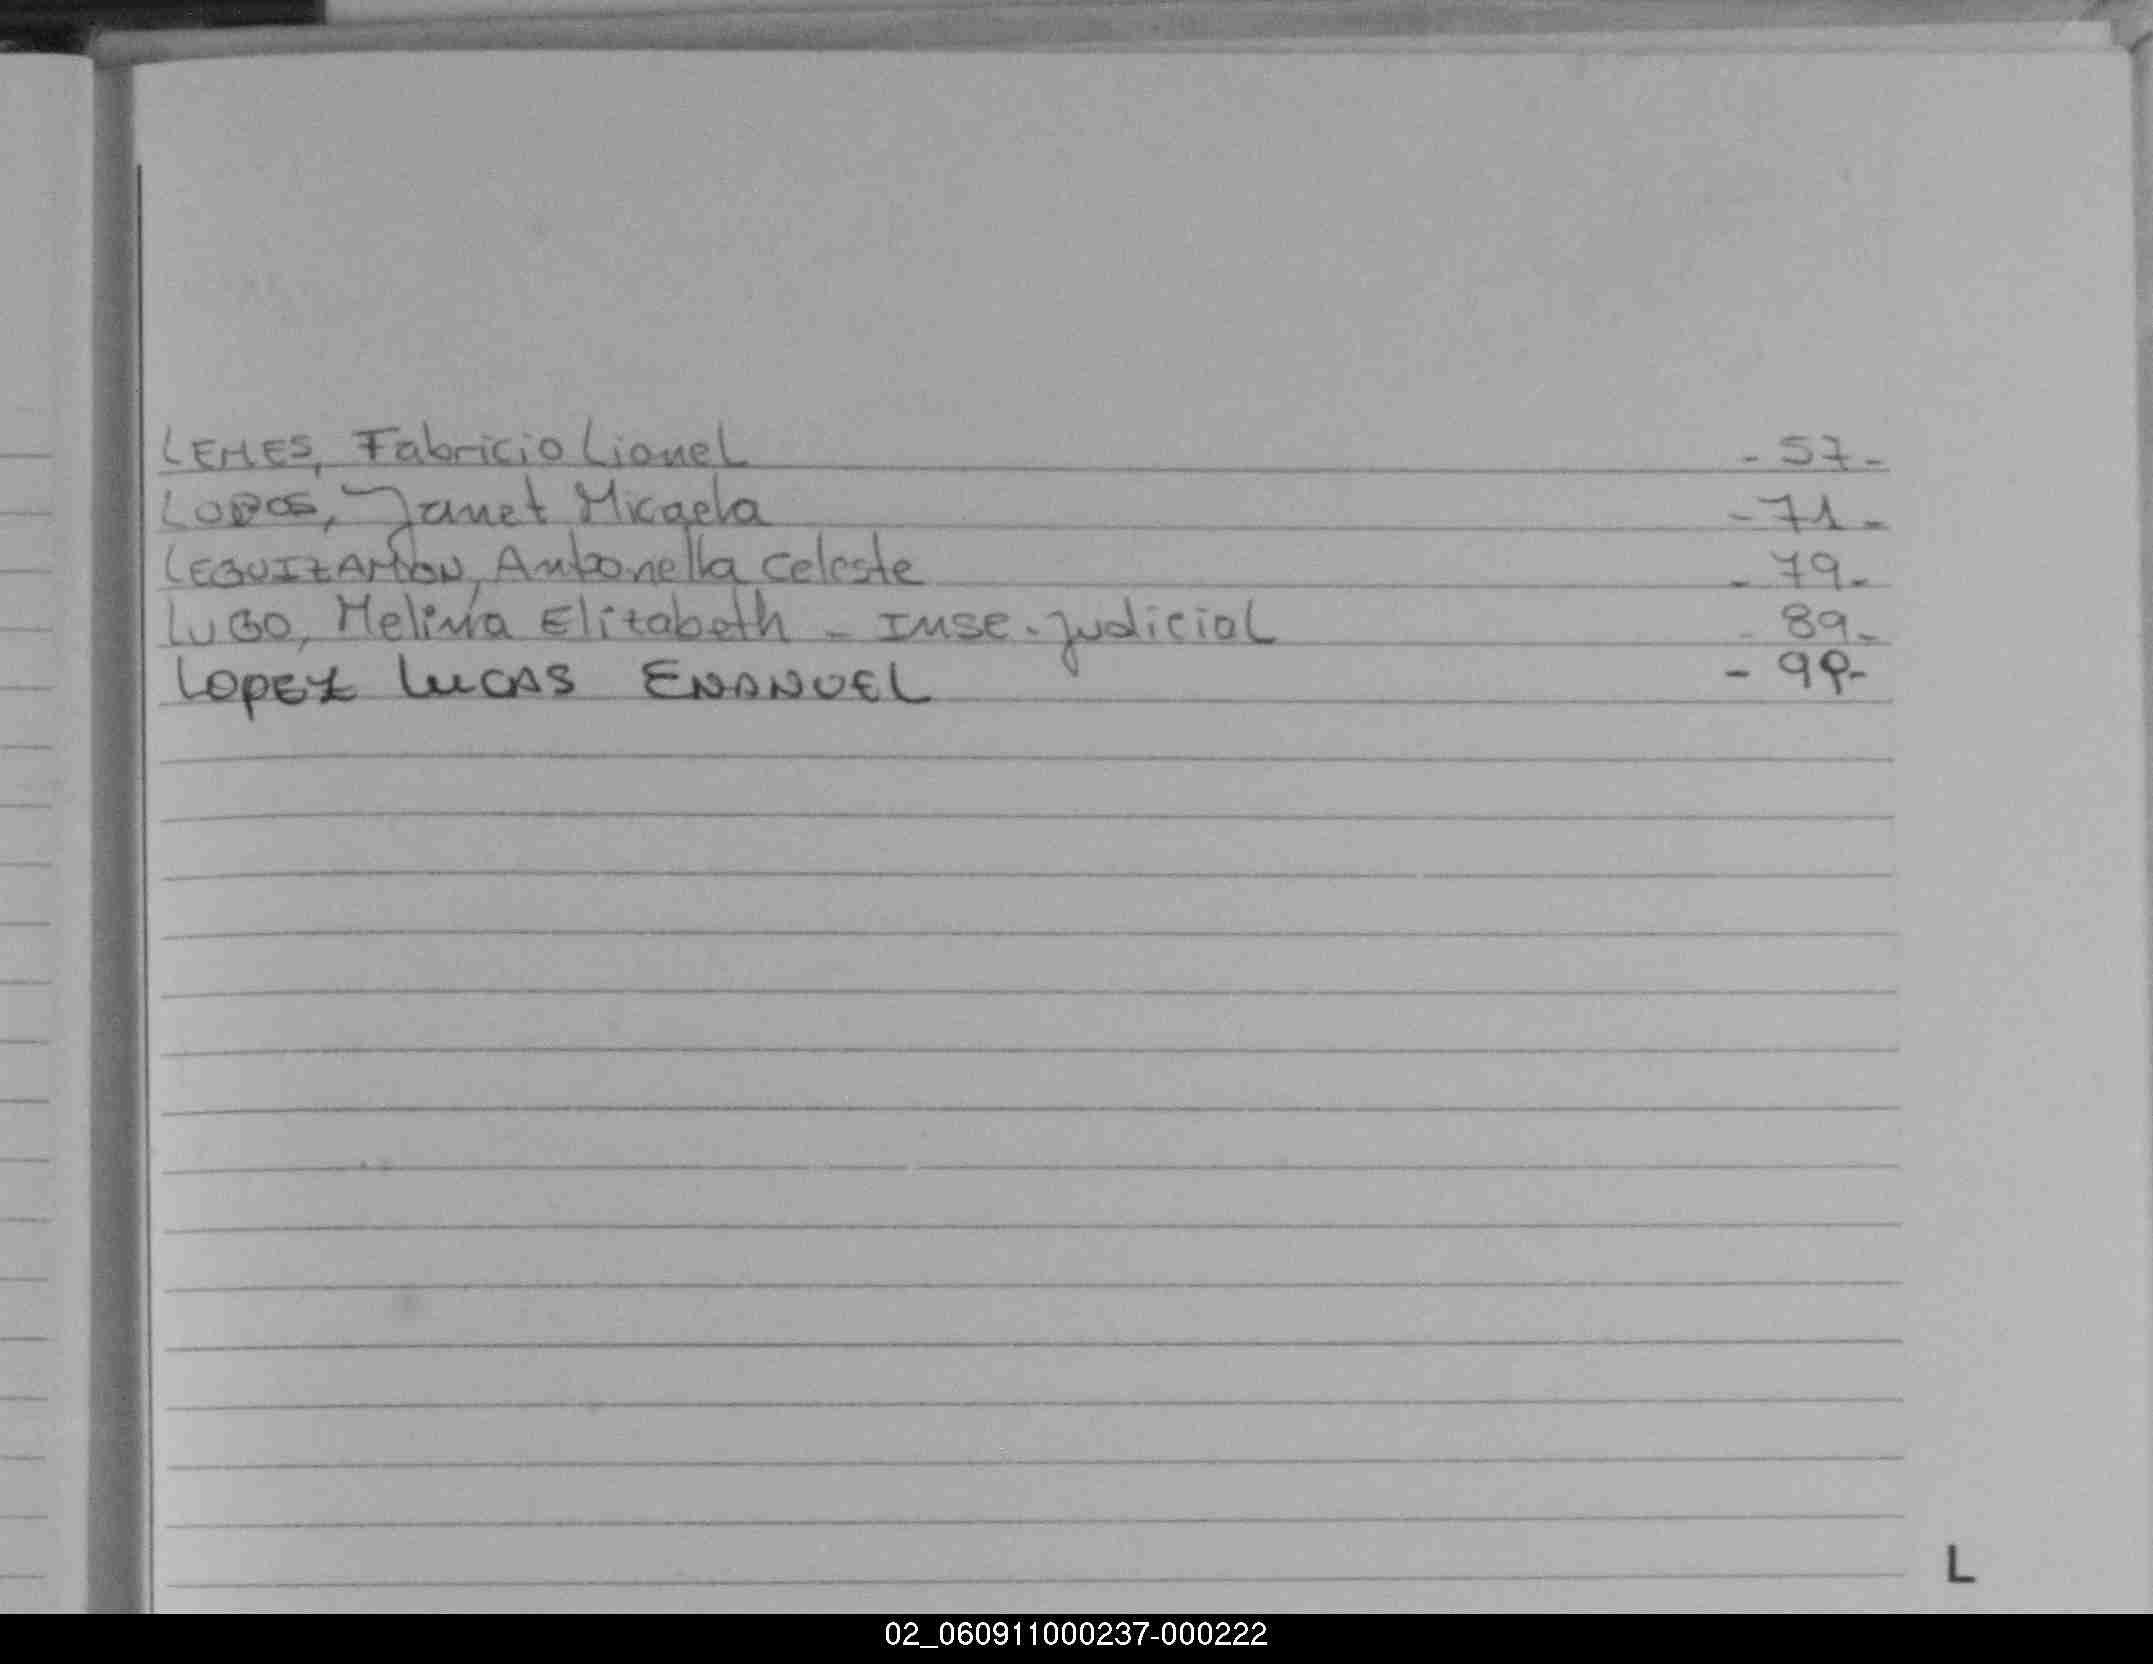 LEMES, Fabricio Lionel - 57 -
LOBOS, Janet Micaela - 71 -
LEGUIZAMON, Antonella Celeste - 79 -
LUGO, Melina Elizabeth - Inse. judicial - 89 -
LOPEZ LUCAS EMANUEL - 99 -
L
02_060911000237-000222